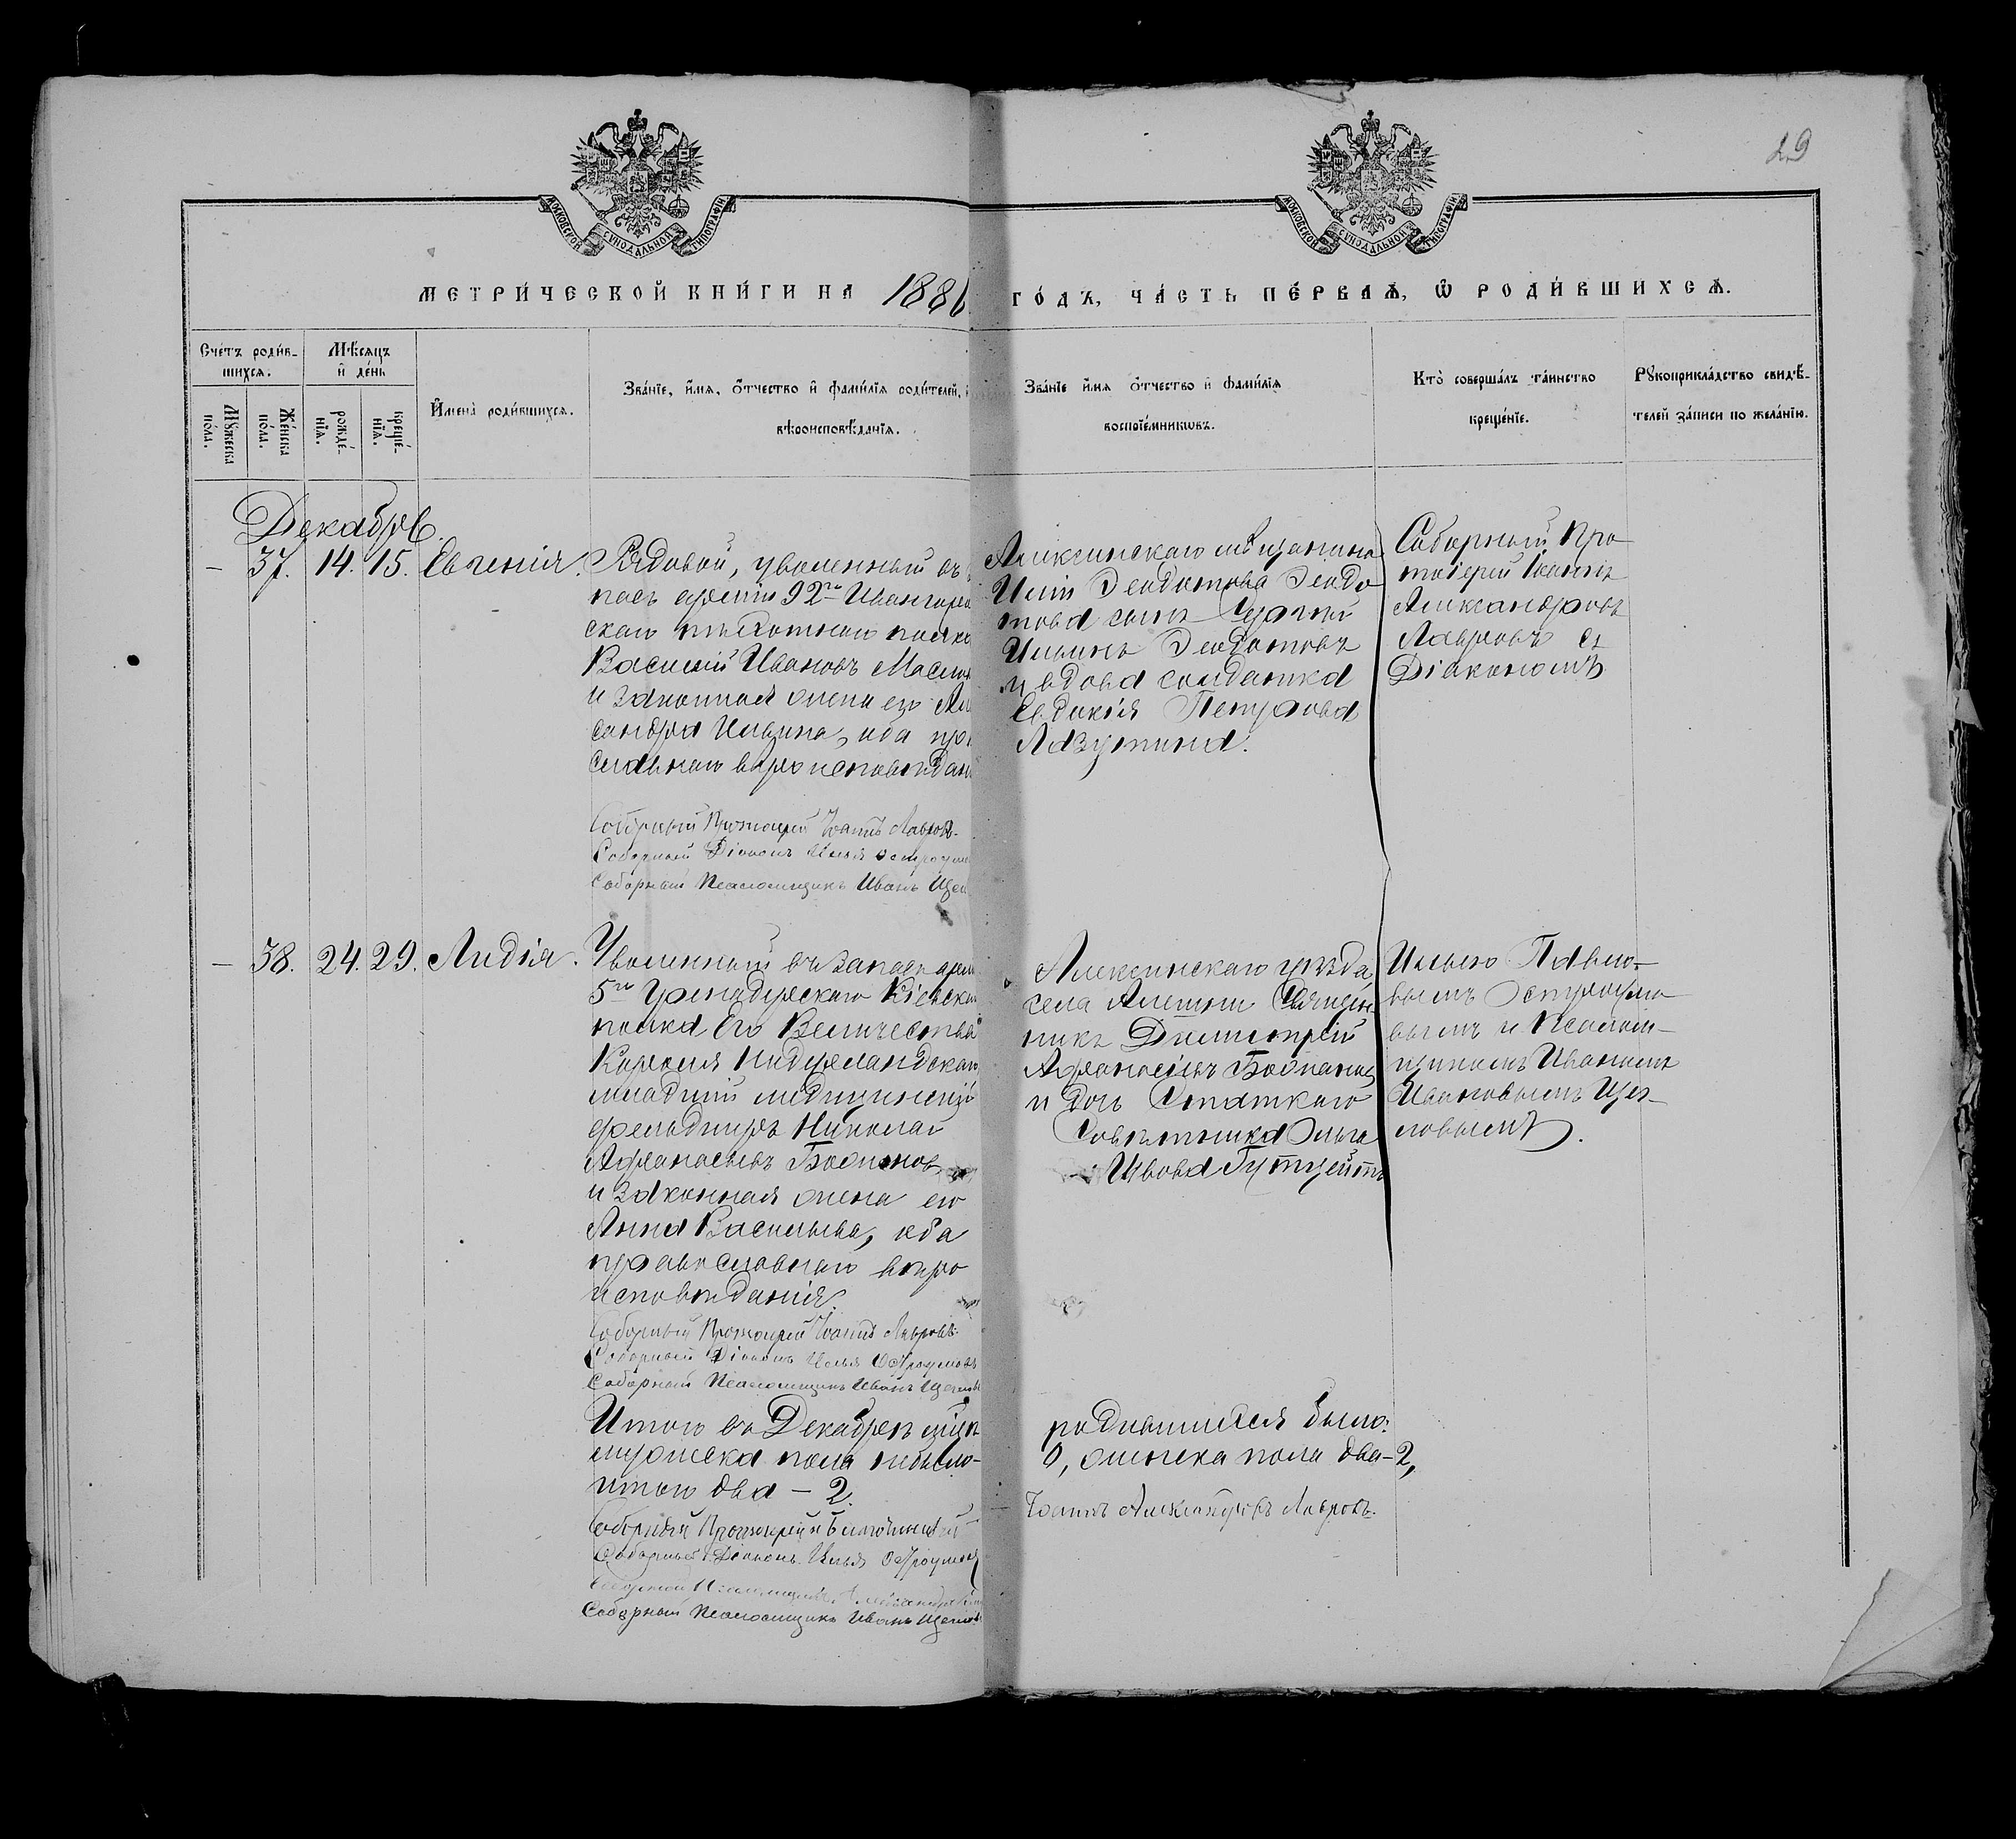 29
МОСКОВСКОЙ СУНОДАЛЬНОЙ ТИПОГРАФІИ
МОСКОВСКОЙ СУНОДАЛЬНОЙ ТИПОГРАФІИ
МЕТРИ́ЧЕСКОЙ КНИ́ГИ НА 1886
ГО́ДЪ, ЧА́СТЬ ПЕ́РВАѦ, Ѡ РОДИ́ВШИХСѦ.
Сче́тъ роди́в-
шихся.
Мѣсяцъ
и де́нь
Мꙋжеска
по́ла.
Же́нска
по́ла.
рожде́-
нїя.
креще́-
нїя.
И҆мена̀ роди́вшихся.
Зва́нїе, и҆́мя, о҆́тчество и҆ фами́лїя роди́телей,
вѣроисповѣ́данїя.
Зва́нїе и҆́мя о҆́тчество и҆ фами́лїя
воспрїе́мникѡвъ.
Кто̀ соверша́лъ та́инство
креще́нїе.
Рꙋкоприкла́дство свидѣ́-
телей за́писи по жела́нїю.
Декабрь.
– 37. 14. 15. Евгенія.
Рядовой, уволенный въ
пасъ арміи 92го Ивангород
скаго пѣхотнаго полка
Василій Ивановъ Масло
и законная жена его Але
сандра Ильина, оба пра
славнаго вѣроисповѣдан
Соборный Протоіерей Іоаннъ Лавровъ.
Соборный Діаконъ Илья Остроум
Соборный Псаломщикъ Иванъ Щег
Алексинскаго мѣщанина
Ильи Деодотова Деодо
това сынъ Сергѣй
Ильинъ Деодотовъ
и вдова солдатка
Евдокія Петрова
Лазутина.
Соборный Про
тоіерей Іоаннъ
Александровъ
Лавровъ съ
Діакономъ
– 38. 24. 29. Лидія.
Уволенный въ запасъ арм
5го Гренадерскаго Кіевска
полка Его Величества
Короля Нидерландскаго
младшій медицинскій
фельдшеръ Николай
Афанасьевъ
и законная жена его
Анна Васильева, оба
православнаго вѣро
исповѣданія
Соборный Протоіерей Іоаннъ Лавровъ.
Соборный Діаконъ Илья Остроумовъ
Соборный Псаломщикъ Иванъ Щегловъ
Алексинскаго уѣзда,
села Алешни Священ-
никъ Димитрій
Афанасьевъ
и дочь Статскаго
Совѣтника Ольга
Львова
Ильею Павло-
вымъ Остроумо
вымъ и Псалом-
щикомъ Иваномъ
Ивановымъ Щег-
ловымъ.
Итого въ Декабрѣ мѣся
родившихся было:
мужеска пола небыло-
0, женска пола два-2,
итого два – 2.
Соборный Протоіерей
Іоаннъ Александровъ Лавровъ.
Соборный Діаконъ Илья Остроумовъ
Соборный Псаломщикъ
Соборный Псаломщикъ Иванъ Щегловъ